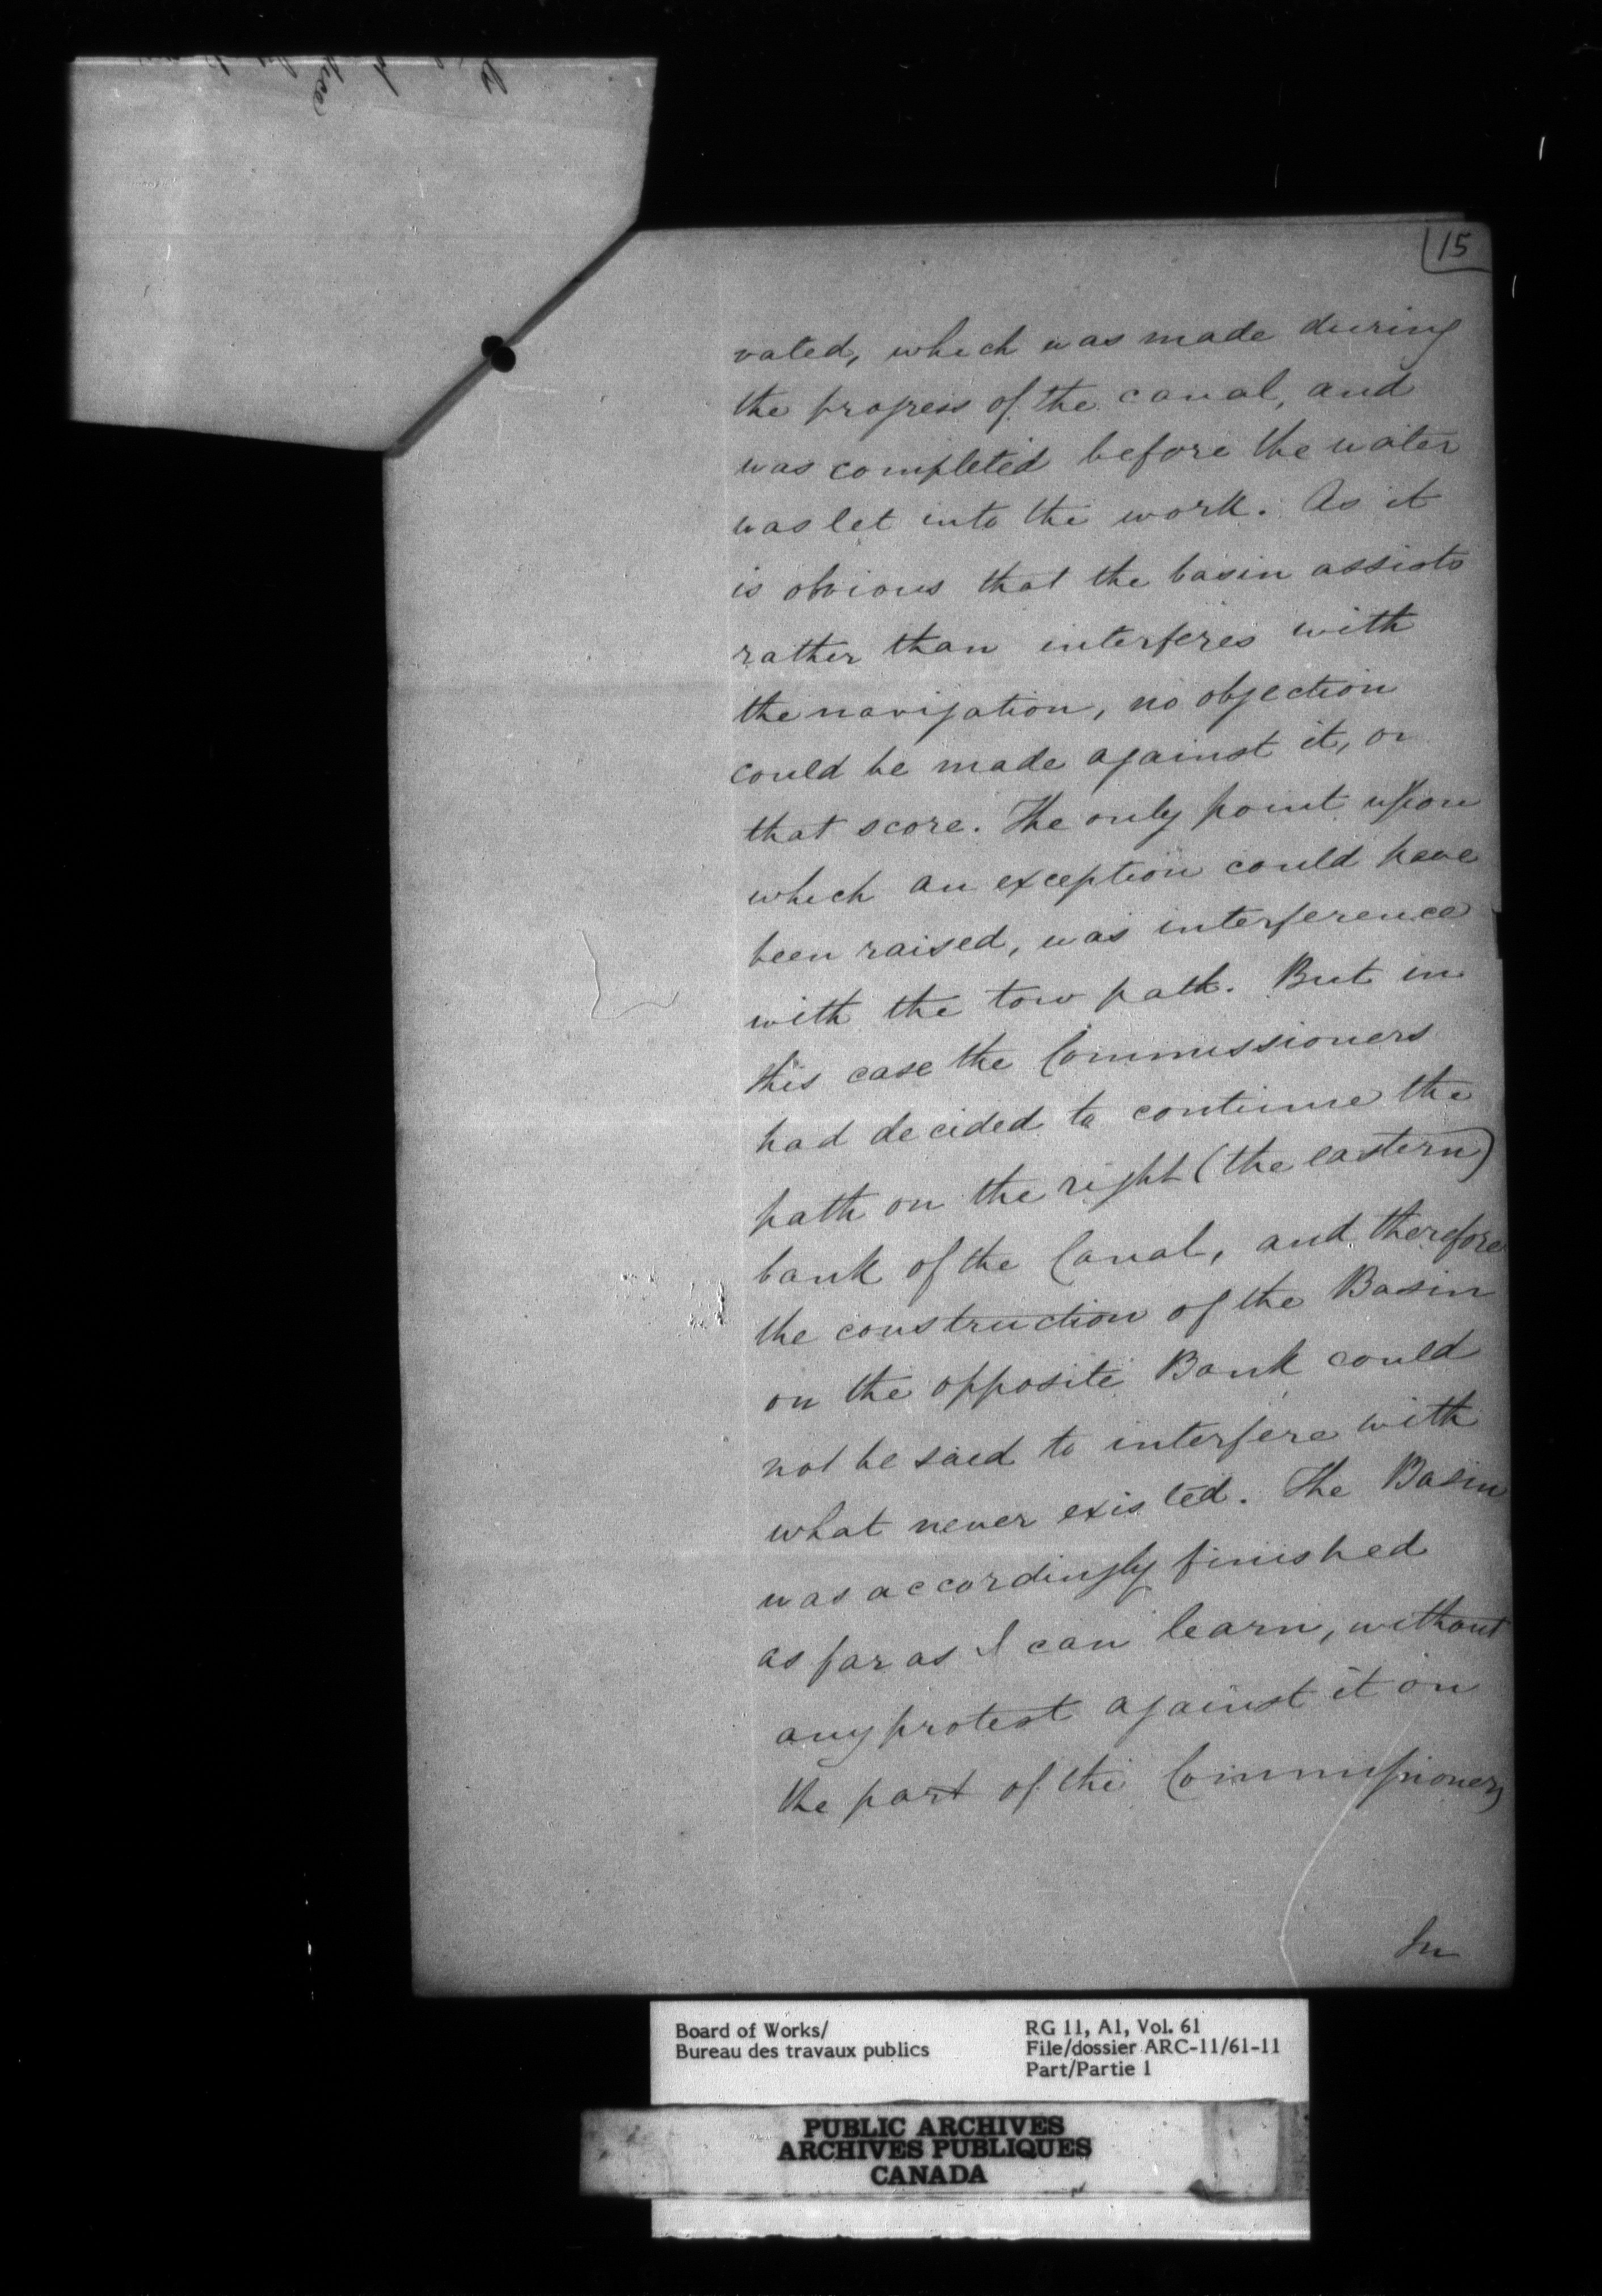 15
vated, which was made during
the progress of the canal, and
was completed before the water
was let into the work. As it
is obvious that the basin assists
rather than interferes with
the navigation, no objection
could be made against it, on
that score. The only point upon
which an exception could have
been raised, was interference
with the tow path. But in
this case the Commissioners
had decided to continue the
path on the right (the eastern)
bank of the Canal, and therefore
the construction of the Basin
on the opposite Bank could
not be said to interfere with
what never existed. The Basin
was accordingly finished
as far as I can learn, without
any protest against it on
the part of the Commissioners
In
Board of Works/
Bureau des travaux publics
RG 11, A1, Vol. 61
File/dossier ARC-11/61-11
Part/Partie 1
PUBLIC ARCHIVES
ARCHIVES PUBLIQUES
CANADA